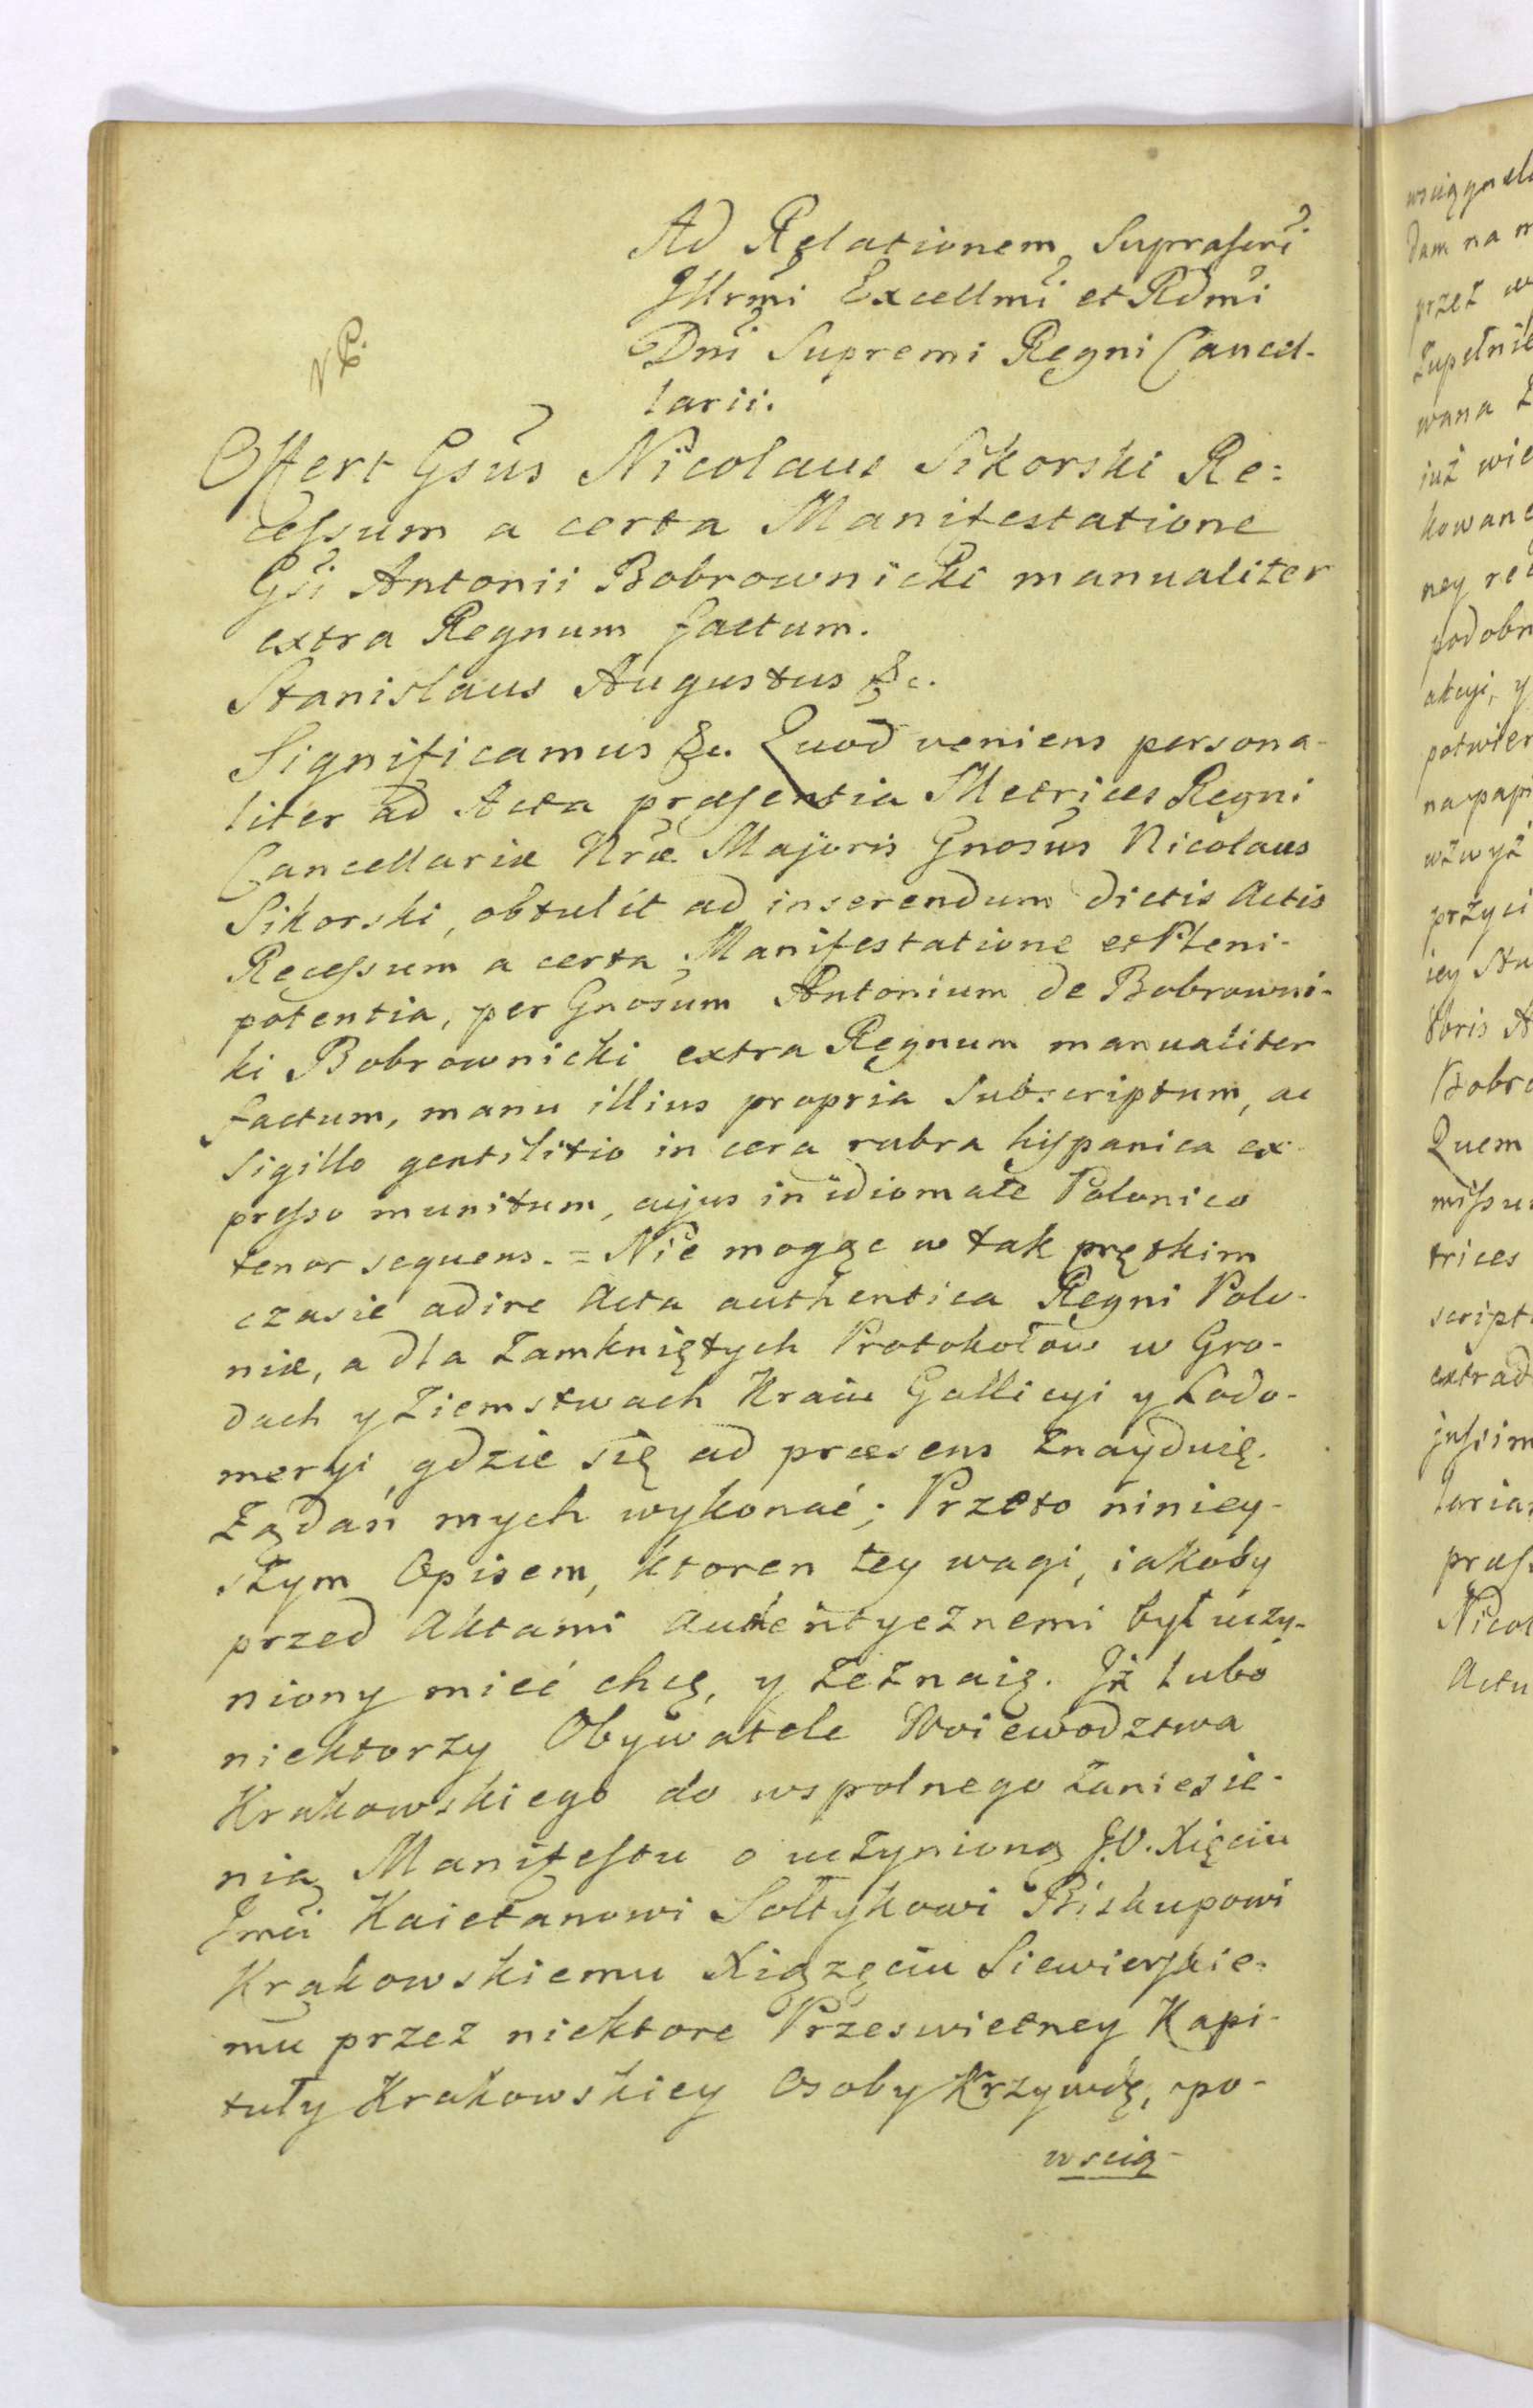 Ad Relationem Suprascri
Illrmi Excellmi et Rdmi
Dni Supremi Regni Cancel-
larii.
NB.
Offert Gsus Nicolaus Sikorski Re=
cessum a certa Manifestatione
Gsi Antonii Bobrownicki manualiter
extra Regnum factum.
Stanislaus Augustus &c.
Significamus &c. Quod veniens persona-
liter ad Acta præsentia Metrices Regni
Cancellariæ Nræ Majoris Gnosus Nicolaus
Sikorski, obtulit ad inserendum dictis Actis
Recessum a certa Manifestatione et Pleni-
potentia, per Gnosum Antonium de Bobrowni-
ki Bobrownicki extra Regnum manualiter
factum, manu illius propria Subscriptum, ac
Sigillo gentilitio in cera rubra hispanica ex-
presso munitum, cujus in idiomate Polonico
tenor sequens. = Nie mogąc w tak prętkim
czasie adire Acta authentica Regni Polo-
niæ, a dla zamkniętych Protokołow w Gro-
dach y Ziemstwach Kraiu Gallicyi y Lodo-
meryi, gdzie się ad præsens znayduię.
Żądań mych wykonać; Przeto niniey-
szym Opisem, ktoren tey wagi, iakoby
przed Aktami Autentycznemi był uczy-
niony mieć chcę, y zeznaię. Iż lubo
niektorzy Obywatele Woiewodztwa
Krakowskiego do wspolnego zaniesie-
nia Manifestu o uczynioną J.O. Xięciu
Jmci Kaietanowi Sołtykowi Biskupowi
Krakowskiemu Xiążęciu Siewierskie-
mu przez niektore Przeswietney Kapi-
tuły Krakowskiey Osoby Krzywdę, po-
wscią-
wsciągnęła
dam na m
przez w
Zupełnie
wana Z
iuż wie
kowane
ney re
podobn
akcyi, y
potwier
na papi
wzwyż
przyci
iey Sta
8bris A
Bobro
Quem
missu
trices
script
extrad
jussim
laria
præs
Nicol
Actu